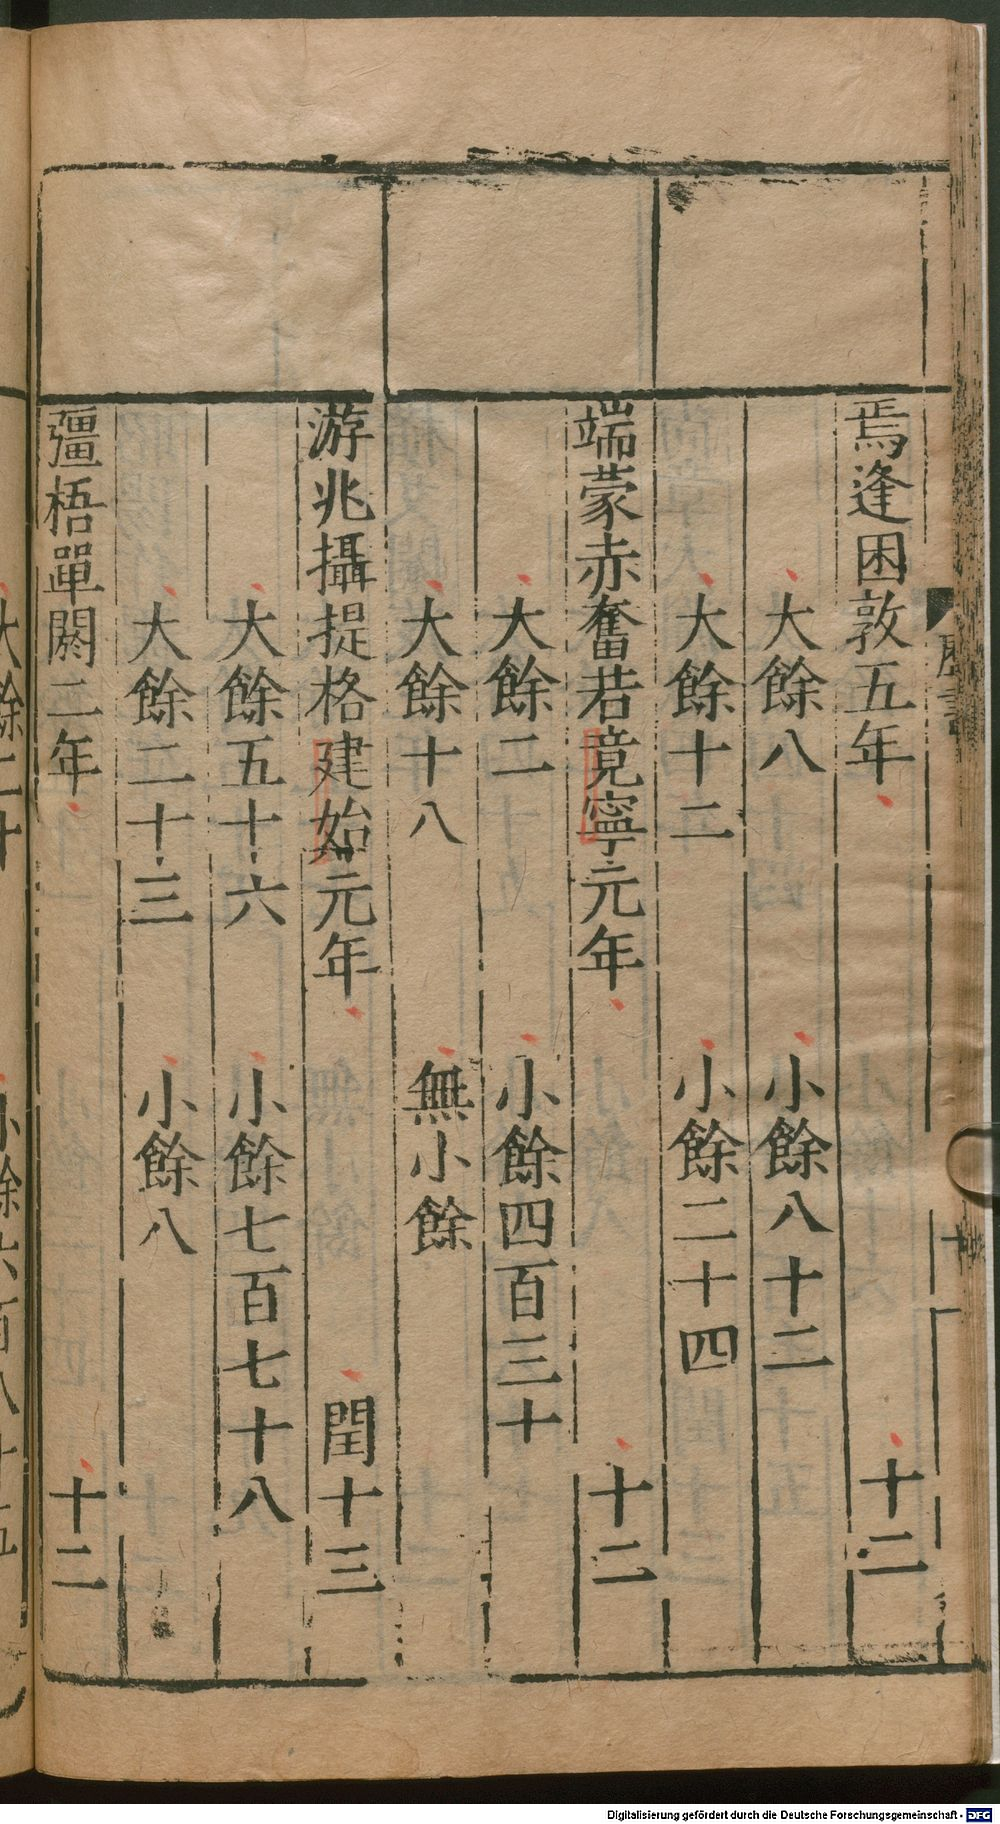 焉逢困敦五年 十二
大餘八 小餘八十二
大餘十二 小餘二十四
端蒙赤奮若竟寧元年 十二
大餘二 小餘四百三十
大餘十八 無小餘
游兆攝提格建始元年 閏十三
大餘五十六 小餘七百七十八
大餘二十三 小餘八
彊梧單閼二年 十二
大餘二十 小餘六百八十五
Digitalisierung gefördert durch die Deutsche Forschungsgemeinschaft - DFG